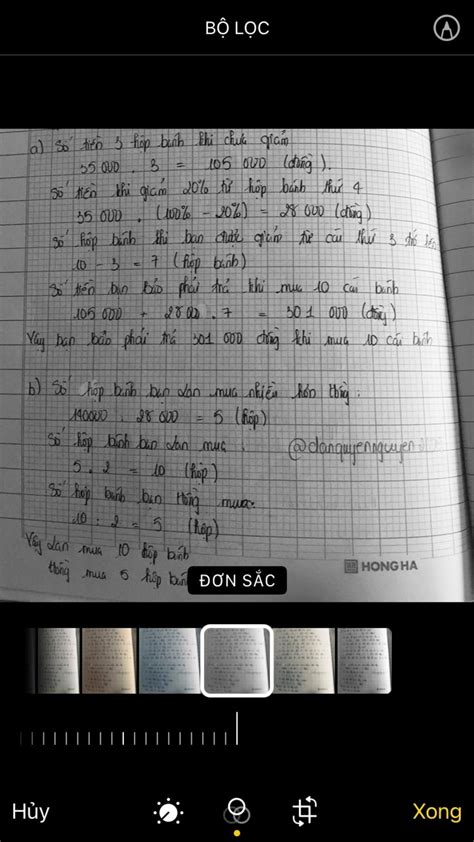 BỘ LỌC
a) Số tiền 3 hộp bánh khi chưa giảm
35 000 . 3 = 105 000 (đồng).
Số tiền khi giảm 20% từ hộp bánh thứ 4
35 000 . (100% - 20%) = 28 000 (đồng)
Số hộp bánh khi bạn được giảm từ cái thứ 3 trở lên
10 - 3 = 7 (hộp bánh)
Số tiền bạn Bảo phải trả khi mua 10 cái bánh
105 000 + 28 00 . 7 = 301 000 (đồng)
Vậy bạn bảo phải trả 301 000 đồng khi mua 10 cái bánh
b) Số hộp bánh bạn Lan mua nhiều hơn Hồng.
140000 : 28 000 = 5 (hộp)
Số hộp bánh bạn Lan mua.
@danquyennguyen
5 . 2 = 10 (hộp)
Số hộp bánh bạn Hồng mua.
10 : 2 = 5 (hộp)
Vậy Lan mua 10 hộp bánh
HONG HA
Hồng mua 5 hộp bánh
ĐƠN SẮC
Hủy
Xong